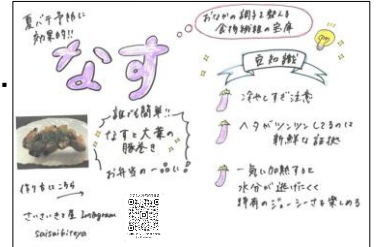 夏バテ予防に
効果的!!
なす
おなかの調子を整える
食物繊維の宝庫
豆知識
冷やしすぎ注意
ヘタがツンツンしてるのは
新鮮な証拠
一気に加熱すると
水分が逃げにくく
特有のジューシーさを楽しめる
誰でも簡単!!
なすと大葉の
豚巻き
お弁当の一品に!
作り方はこちら
さいさいきて屋 Instagram
saisaikiteya